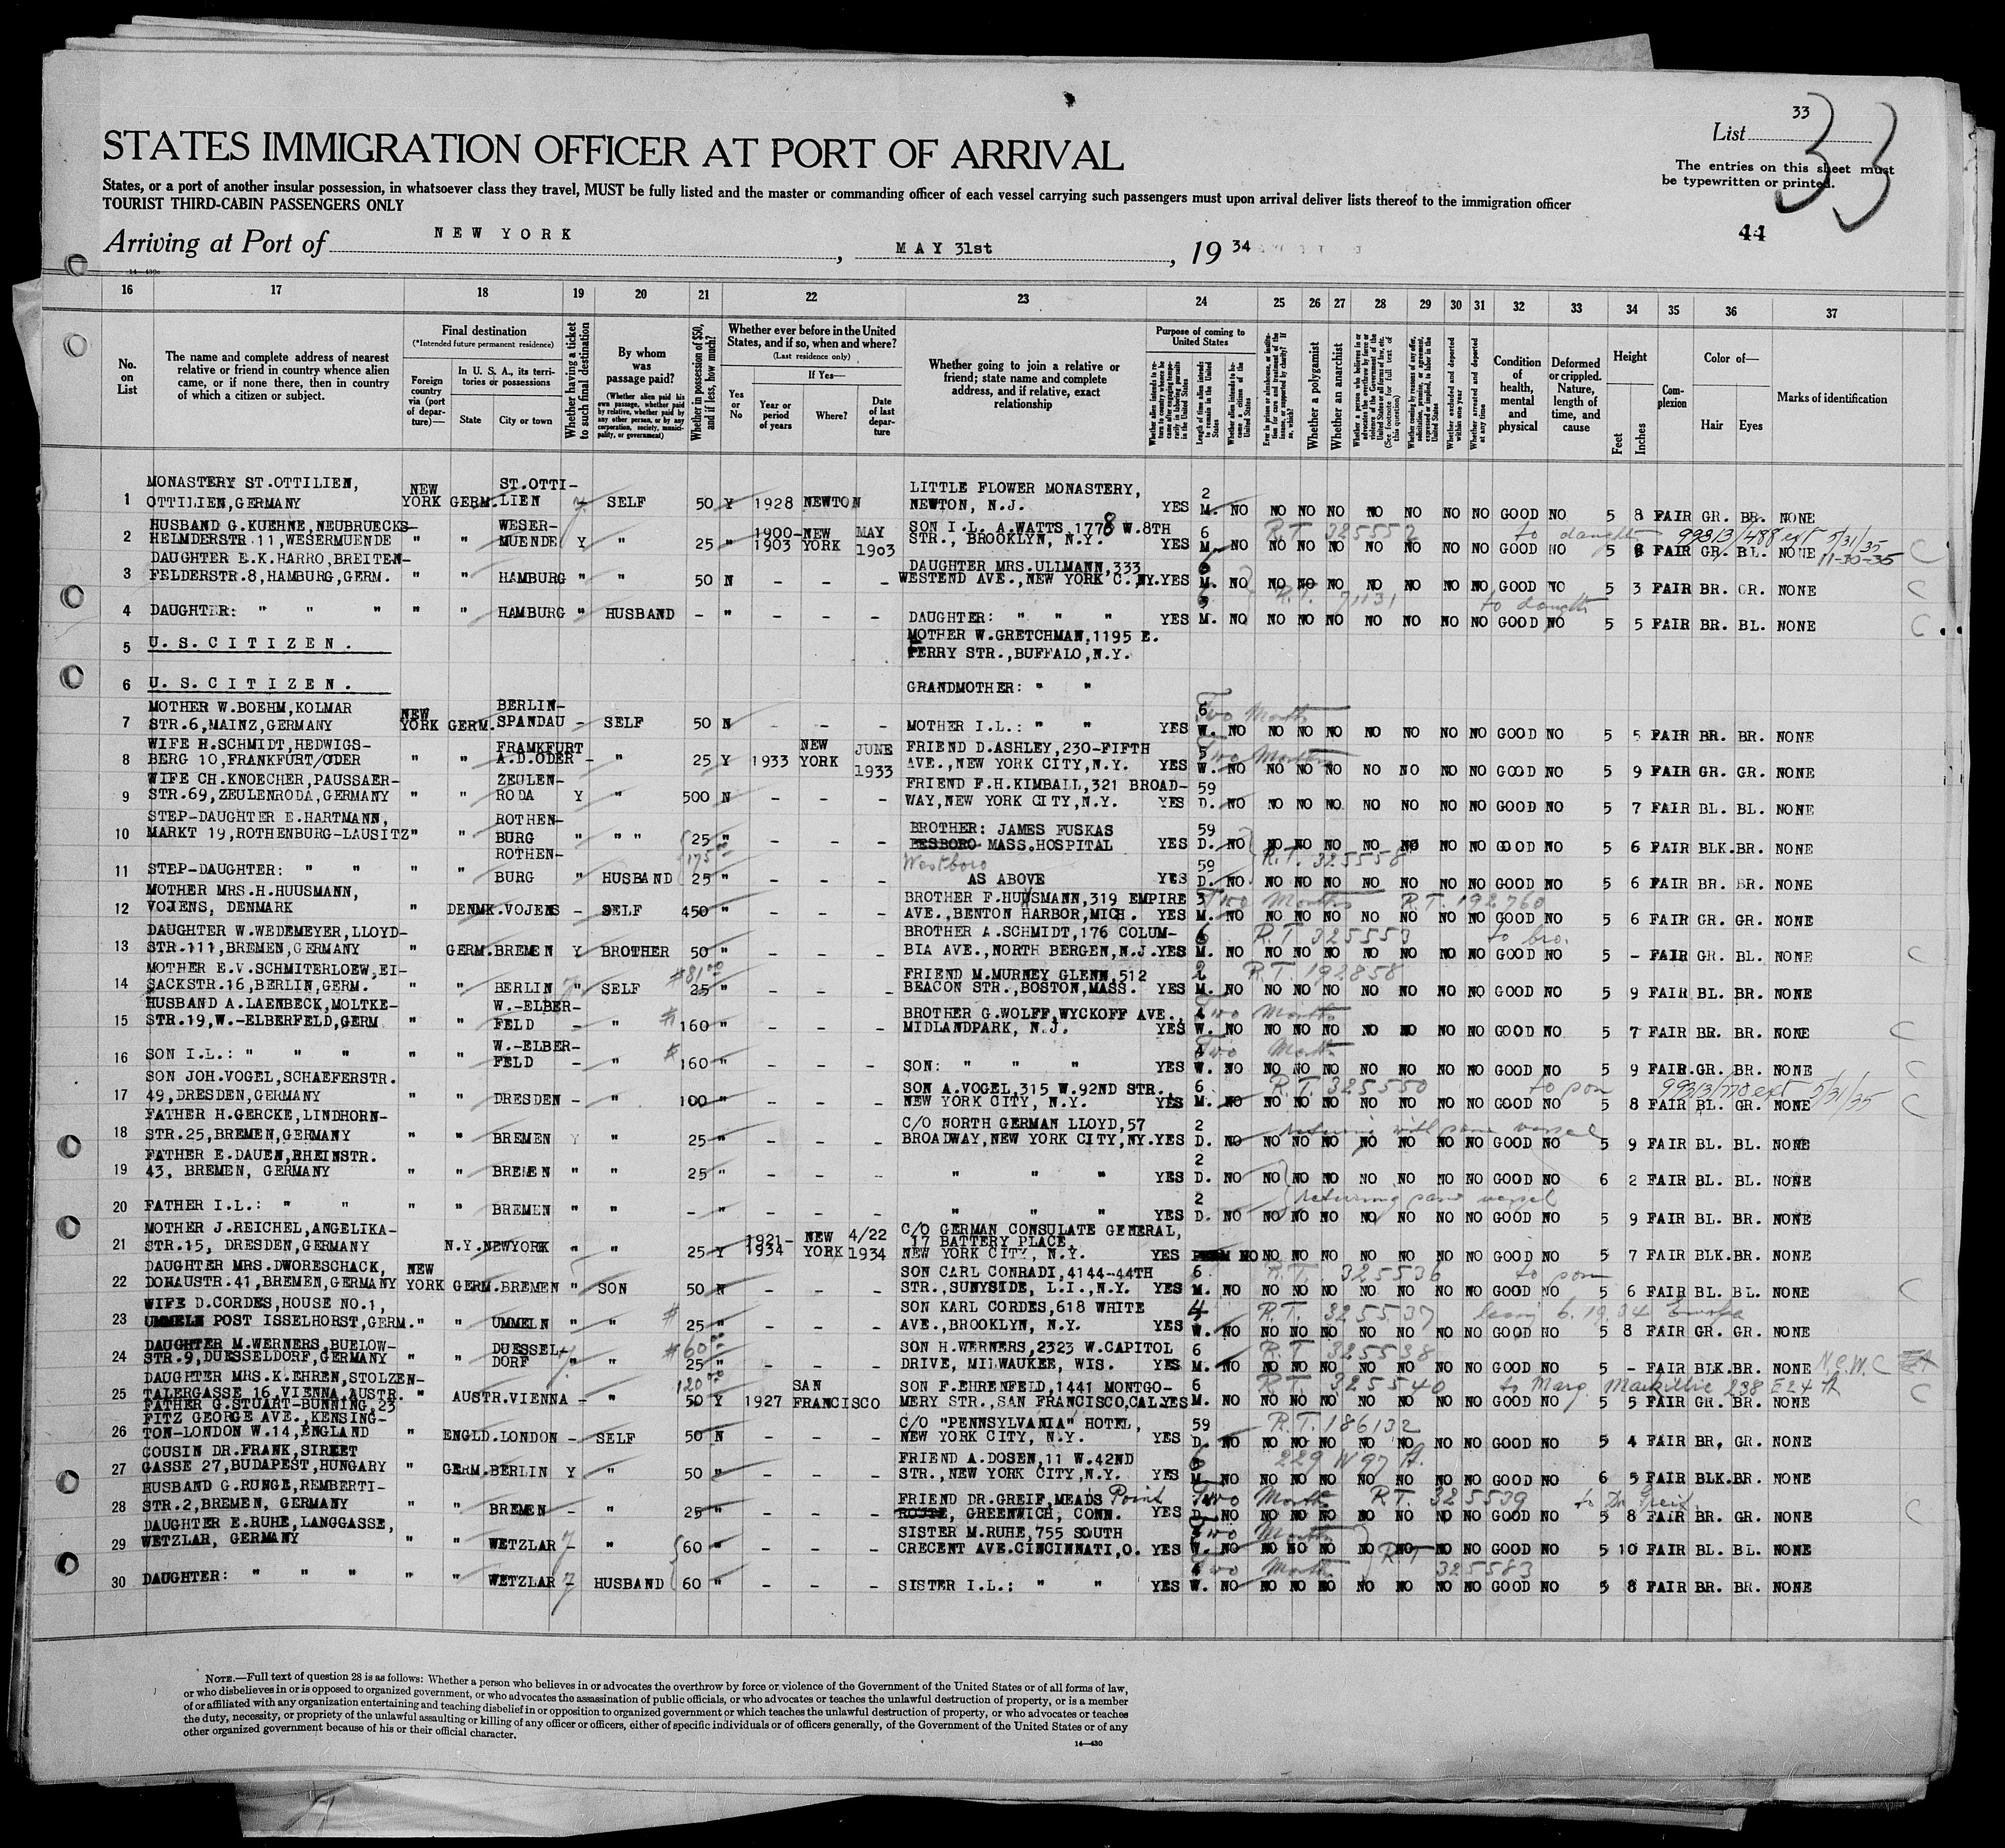 33
List
33
STATES IMMIGRATION OFFICER AT PORT OF ARRIVAL
The entries on this sheet must
be typewritten or printed.
States, or a port of another insular possession, in whatsoever class they travel, MUST be fully listed and the master or commanding officer of each vessel carrying such passengers must upon arrival deliver lists thereof to the immigration officer
TOURIST THIRD-CABIN PASSENGERS ONLY
44
Arriving at Port of NEW YORK, MAY 31st, 19 34
14—430c
16 17 18 19 20 21 22 23 24 25 26 27 28 29 30 31 32 33 34 35 36 37
No. on List
The name and complete address of nearest relative or friend in country whence alien came, or if none there, then in country of which a citizen or subject.
Final destination
(*Intended future permanent residence)
Foreign country via (port of departure)—
In U. S. A., its territories or possessions
State
City or town
Whether having a ticket to such final destination
By whom was passage paid?
(Whether alien paid his own passage, whether paid by relative, whether paid by any other person, or by any corporation, society, municipality, or government)
Whether in possession of $50, and if less, how much?
Whether ever before in the United States, and if so, when and where?
(Last residence only)
Yes or No
If Yes—
Year or period of years
Where?
Date of last departure
Whether going to join a relative or friend; state name and complete address, and if relative, exact relationship
Purpose of coming to United States
Length of time alien intends to remain in the United States
Whether alien intends to become a citizen of the United States
Whether a polygamist
Whether an anarchist
Whether excluded and deported within one year
Whether arrested and deported at any time
Condition of health, mental and physical
Deformed or crippled. Nature, length of time, and cause
Height
Feet
Inches
Complexion
Color of—
Hair
Eyes
Marks of identification
MONASTERY ST.OTTILIEN, NEW ST.OTTI- LITTLE FLOWER MONASTERY, 2
1 OTTILIEN,GERMANY YORK GERM. LIEN SELF 50 Y 1928 NEWTON NEWTON, N.J. YES M. NO NO NO NO NO NO NO NO GOOD NO 5 8 FAIR GR. BR. NONE
HUSBAND G.KUEHNE,NEUBRUECKS- WESER- 1900- NEW MAY SON I.L. A.WATTS,1778 W.8TH 6 R.T. 325552 to daughter 99313/488 ext 5/31/35
2 HELMDERSTR.11,WESERMUENDE " " MUENDE Y " 25 " 1903 YORK 1903 STR., BROOKLYN, N.Y. YES M. NO NO NO NO NO NO NO NO GOOD NO 5 8 FAIR GR. BL. NONE 11-30-35 C
DAUGHTER E.K.HARRO,BREITEN- DAUGHTER MRS.ULLMANN,333 6
3 FELDERSTR.8,HAMBURG,GERM. " " HAMBURG " " 50 N - - - WESTEND AVE.,NEW YORK C.,NY. YES M. NO NO NO NO NO NO NO NO GOOD NO 5 3 FAIR BR. GR. NONE C
R.T. 71131 to daughter
4 DAUGHTER: " " " " " HAMBURG " HUSBAND - " - - - DAUGHTER: " " " YES M. NO NO NO NO NO NO NO NO GOOD NO 5 5 FAIR BR. BL. NONE C
MOTHER W.GRETCHMAN,1195 E.
5 U.S.CITIZEN. FERRY STR.,BUFFALO,N.Y.
6 U.S.CITIZEN. GRANDMOTHER: " "
MOTHER W.BOEHM,KOLMAR NEW BERLIN- 6 Two Months
7 STR.6,MAINZ,GERMANY YORK GERM. SPANDAU - SELF 50 N - - - MOTHER I.L.: " " YES W. NO NO NO NO NO NO NO NO GOOD NO 5 5 FAIR BR. BR. NONE
WIFE H.SCHMIDT,HEDWIGS- FRANKFURT NEW JUNE FRIEND D.ASHLEY,230-FIFTH 5 Two Months
8 BERG 10,FRANKFURT/ODER " " A.D.ODER - " 25 Y 1933 YORK 1933 AVE.,NEW YORK CITY,N.Y. YES W. NO NO NO NO NO NO NO NO GOOD NO 5 9 FAIR GR. GR. NONE
WIFE CH.KNOECHER,PAUSSAER- ZEULEN- FRIEND F.H.KIMBALL,321 BROAD- 59
9 STR.69,ZEULENRODA,GERMANY " " RODA Y " 500 N - - - WAY,NEW YORK CITY,N.Y. YES D. NO NO NO NO NO NO NO NO GOOD NO 5 7 FAIR BL. BL. NONE
STEP-DAUGHTER E.HARTMANN, ROTHEN- BROTHER: JAMES FUSKAS 59
10 MARKT 19,ROTHENBURG-LAUSITZ " " BURG " " " 25 " - - - BESBORO MASS.HOSPITAL YES D. NO NO NO NO NO NO NO NO GOOD NO 5 6 FAIR BLK.BR. NONE
ROTHEN- 175 Westboro 59 R.T. 325558
11 STEP-DAUGHTER: " " " " BURG " HUSBAND 25 " - - - AS ABOVE YES D. NO NO NO NO NO NO NO NO GOOD NO 5 6 FAIR BR. BR. NONE
MOTHER MRS.H.HUUSMANN, BROTHER F.HUUSMANN,319 EMPIRE 3 Two Months R.T. 192760
12 VOJENS, DENMARK " DENMK.VOJENS - SELF 450 " - - - AVE.,BENTON HARBOR,MICH. YES M. NO NO NO NO NO NO NO NO GOOD NO 5 6 FAIR GR. GR. NONE
DAUGHTER W.WEDEMEYER,LLOYD- BROTHER A.SCHMIDT,176 COLUM- 6 R.T. 325553 to bro.
13 STR.111,BREMEN,GERMANY GERM.BREMEN Y BROTHER 50 " - - - BIA AVE.,NORTH BERGEN,N.J. YES M. NO NO NO NO NO NO NO NO GOOD NO 5 - FAIR GR. BL. NONE C
MOTHER E.V.SCHMITERLOEW,EI- #81 FRIEND M.MURNEY GLENN,512 2 R.T. 192858
14 SACKSTR.16,BERLIN,GERM. " " BERLIN " SELF 25 " - - - BEACON STR.,BOSTON,MASS. YES M. NO NO NO NO NO NO NO NO GOOD NO 5 9 FAIR BL. BR. NONE
HUSBAND A.LAENBECK,MOLTKE- W.-ELBER- BROTHER G.WOLFF,WYCKOFF AVE., 4 Two Months
15 STR.19,W.-ELBERFELD,GERM " " FELD - " # 160 " - - - MIDLANDPARK, N.J. YES W. NO NO NO NO NO NO NO NO GOOD NO 5 7 FAIR BR. BR. NONE C
W.-ELBER- 4 Two Months
16 SON I.L.: " " " " " FELD - " # 160 " - - - SON: " " " YES W. NO NO NO NO NO NO NO NO GOOD NO 5 9 FAIR.GR. BR. NONE C
SON JOH.VOGEL,SCHAEFERSTR. SON A.VOGEL,315 W.92ND STR., 6 R.T. 325550 to son 99313/770 ext 5/31/35
17 49,DRESDEN,GERMANY " " DRESDEN - " 100 " - - - NEW YORK CITY, N.Y. YES M. NO NO NO NO NO NO NO NO GOOD NO 5 8 FAIR BL. GR. NONE C
FATHER H.GERCKE,LINDHORN- C/O NORTH GERMAN LLOYD,57 2 returning with same vessel
18 STR.25,BREMEN,GERMANY " " BREMEN Y " 25 " - - - BROADWAY,NEW YORK CITY,NY. YES D. NO NO NO NO NO NO NO NO GOOD NO 5 9 FAIR BL. BL. NONE
FATHER E.DAUEN,RHEINSTR. 2
19 43, BREMEN, GERMANY " " BREMEN " " 25 " - - - " " " YES D. NO NO NO NO NO NO NO NO GOOD NO 6 2 FAIR BL. BL. NONE
2 returning same vessel
20 FATHER I.L.: " " " " BREMEN " " - " - - - " " " YES D. NO NO NO NO NO NO NO NO GOOD NO 5 9 FAIR BL. BR. NONE
MOTHER J.REICHEL,ANGELIKA- 1921- NEW 4/22 C/O GERMAN CONSULATE GENERAL, 17 BATTERY PLACE,
21 STR.15, DRESDEN,GERMANY N.Y.NEWYORK " " 25 Y 1934 YORK 1934 NEW YORK CITY, N.Y. YES NO NO NO NO NO NO NO NO GOOD NO 5 7 FAIR BLK.BR. NONE
DAUGHTER MRS.DWORESCHACK, NEW SON CARL CONRADI,4144-44TH 6 R.T. 325536 to son
22 DONAUSTR.41,BREMEN,GERMANY YORK GERM.BREMEN " SON 50 N - - - STR.,SUNYSIDE, L.I.,N.Y. YES M. NO NO NO NO NO NO NO NO GOOD NO 5 6 FAIR BL. BL. NONE C
WIFE D.CORDES,HOUSE NO.1, SON KARL CORDES,618 WHITE 4 R.T. 325537 leaving 6.19.34 Europa
23 UMMELN POST ISSELHORST,GERM. " " UMMELN " " # 25 " - - - AVE.,BROOKLYN, N.Y. YES W. NO NO NO NO NO NO NO NO GOOD NO 5 8 FAIR GR. GR. NONE
DAUGHTER M.WERNERS,BUELOW- DUESSEL- #60 SON H.WERNERS,2323 W.CAPITOL 6 R.T. 325538
24 STR.9,DUESSELDORF,GERMANY " " DORF " " 25 " - - - DRIVE, MILWAUKEE, WIS. YES M. NO NO NO NO NO NO NO NO GOOD NO 5 - FAIR BLK.BR. NONE N.C.W.C
DAUGHTER MRS.K.EHREN,STOLZEN- 120 SAN SON F.EHRENFELD,1441 MONTGO- 6 R.T. 325540 to Marg. Markillie 238 E 24 St
25 TALERGASSE 16,VIENNA,AUSTR. " AUSTR.VIENNA - " 50 Y 1927 FRANCISCO MERY STR.,SAN FRANCISCO,CAL. YES M. NO NO NO NO NO NO NO NO GOOD NO 5 5 FAIR GR. BR. NONE C
FATHER G.STUART-BUNNING,23
FITZ GEORGE AVE.,KENSING- C/O "PENNSYLVANIA" HOTEL, 59 R.T. 186132
26 TON-LONDON W.14,ENGLAND " ENGLD.LONDON - SELF 50 N - - - NEW YORK CITY, N.Y. YES D. NO NO NO NO NO NO NO NO GOOD NO 5 4 FAIR BR. GR. NONE
COUSIN DR.FRANK,SIREET FRIEND A.DOSEN,11 W.42ND 6 229 W 97 St.
27 GASSE 27,BUDAPEST,HUNGARY " GERM.BERLIN Y " 50 " - - - STR.,NEW YORK CITY,N.Y. YES M. NO NO NO NO NO NO NO NO GOOD NO 6 5 FAIR BLK.BR. NONE
HUSBAND G.RUNGE,REMBERTI- FRIEND DR.GREIF,MEADS Point Two Months R.T. 325539 to Dr Greif
28 STR.2,BREMEN, GERMANY " " BREMEN - " 25 " - - - ROUTE, GREENWICH, CONN. YES D. NO NO NO NO NO NO NO NO GOOD NO 5 8 FAIR BR. GR. NONE C
DAUGHTER E.RUHE,LANGGASSE, SISTER M.RUHE,755 SOUTH Two Months
29 WETZLAR, GERMANY " " WETZLAR - " 60 " - - - CRECENT AVE.CINCINNATI,O. YES W. NO NO NO NO NO NO NO NO GOOD NO 5 10 FAIR BL. BL. NONE
Two Months R.T. 325583
30 DAUGHTER: " " " " " WETZLAR - HUSBAND 60 " - - - SISTER I.L.: " " YES W. NO NO NO NO NO NO NO NO GOOD NO 5 8 FAIR BR. BR. NONE
NOTE.—Full text of question 28 is as follows: Whether a person who believes in or advocates the overthrow by force or violence of the Government of the United States or of all forms of law,
or who disbelieves in or is opposed to organized government, or who advocates the assassination of public officials, or who advocates or teaches the unlawful destruction of property, or is a member
of or affiliated with any organization entertaining and teaching disbelief in or opposition to organized government or which teaches the unlawful destruction of property, or who advocates or teaches
the duty, necessity, or propriety of the unlawful assaulting or killing of any officer or officers, either of specific individuals or of officers generally, of the Government of the United States or of any
other organized government because of his or their official character.
14—430